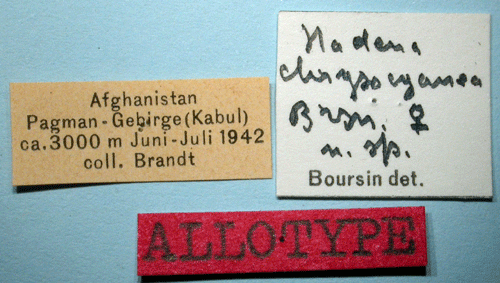 Afghanistan
Pagman-Gebirge(Kabul)
ca.3000 m Juni-Juli 1942
coll. Brandt
Hadena
chrysocyanea
Brsn. ♀
n. sp.
Boursin det.
ALLOTYPE